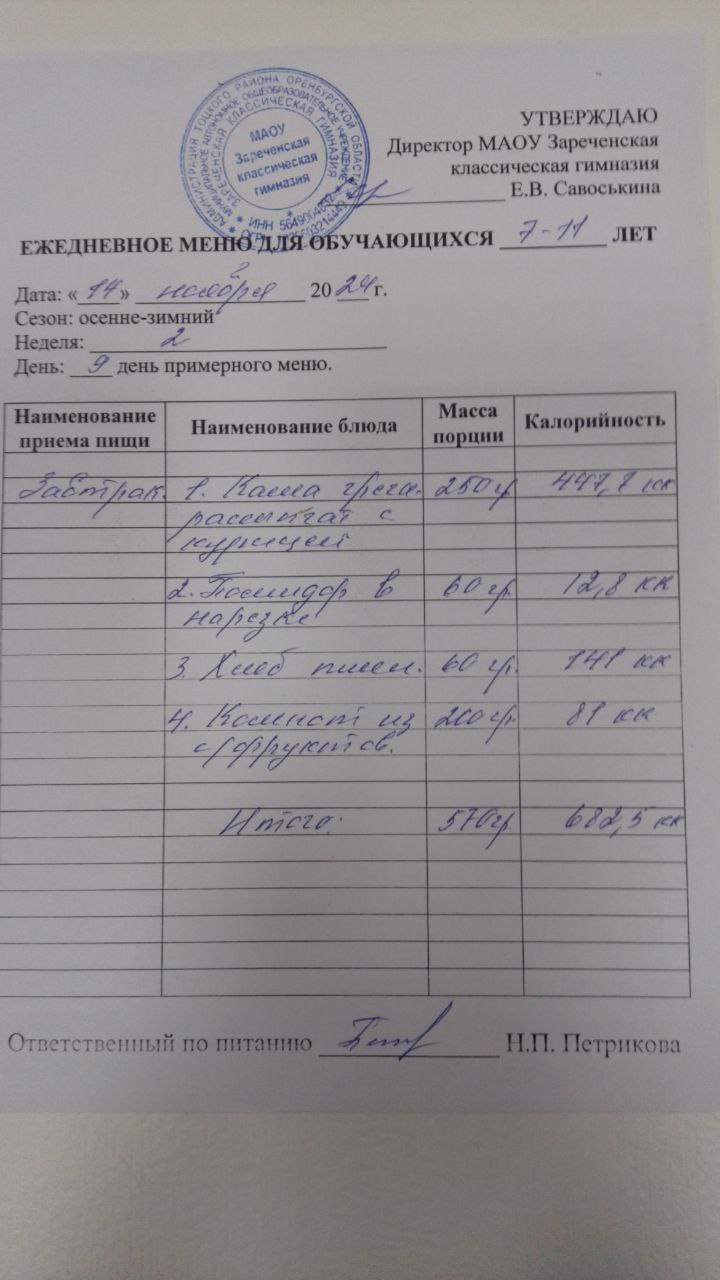 МАОУ
Зареченская
классическая
гимназия
АДМИНИСТРАЦИЯ ТОЦКОГО РАЙОНА ОРЕНБУРГСКОЙ ОБЛАСТИ
МУНИЦИПАЛЬНОЕ АВТОНОМНОЕ ОБЩЕОБРАЗОВАТЕЛЬНОЕ УЧРЕЖДЕНИЕ
ЗАРЕЧЕНСКАЯ КЛАССИЧЕСКАЯ ГИМНАЗИЯ
УТВЕРЖДАЮ
Директор МАОУ Зареченская
классическая гимназия
Е.В. Савоськина
ЕЖЕДНЕВНОЕ МЕНЮ ДЛЯ ОБУЧАЮЩИХСЯ 7-11 ЛЕТ
Дата: «14» ноября 2024 г.
Сезон: осенне-зимний
Неделя: 2
День: 9 день примерного меню.
Наименование приема пищи Наименование блюда Масса порции Калорийность
Завтрак. 1. Каша греч. 250 гр 447,7 кк
рассыпчат с
курицей
2. Помидор в 60 гр. 12,8 кк
нарезке
3. Хлеб пшен. 60 гр. 141 кк
4. Компот из 200 гр. 81 кк
с/фруктов.
Итого: 570 гр. 682,5 кк
Ответственный по питанию Н.П. Петрикова